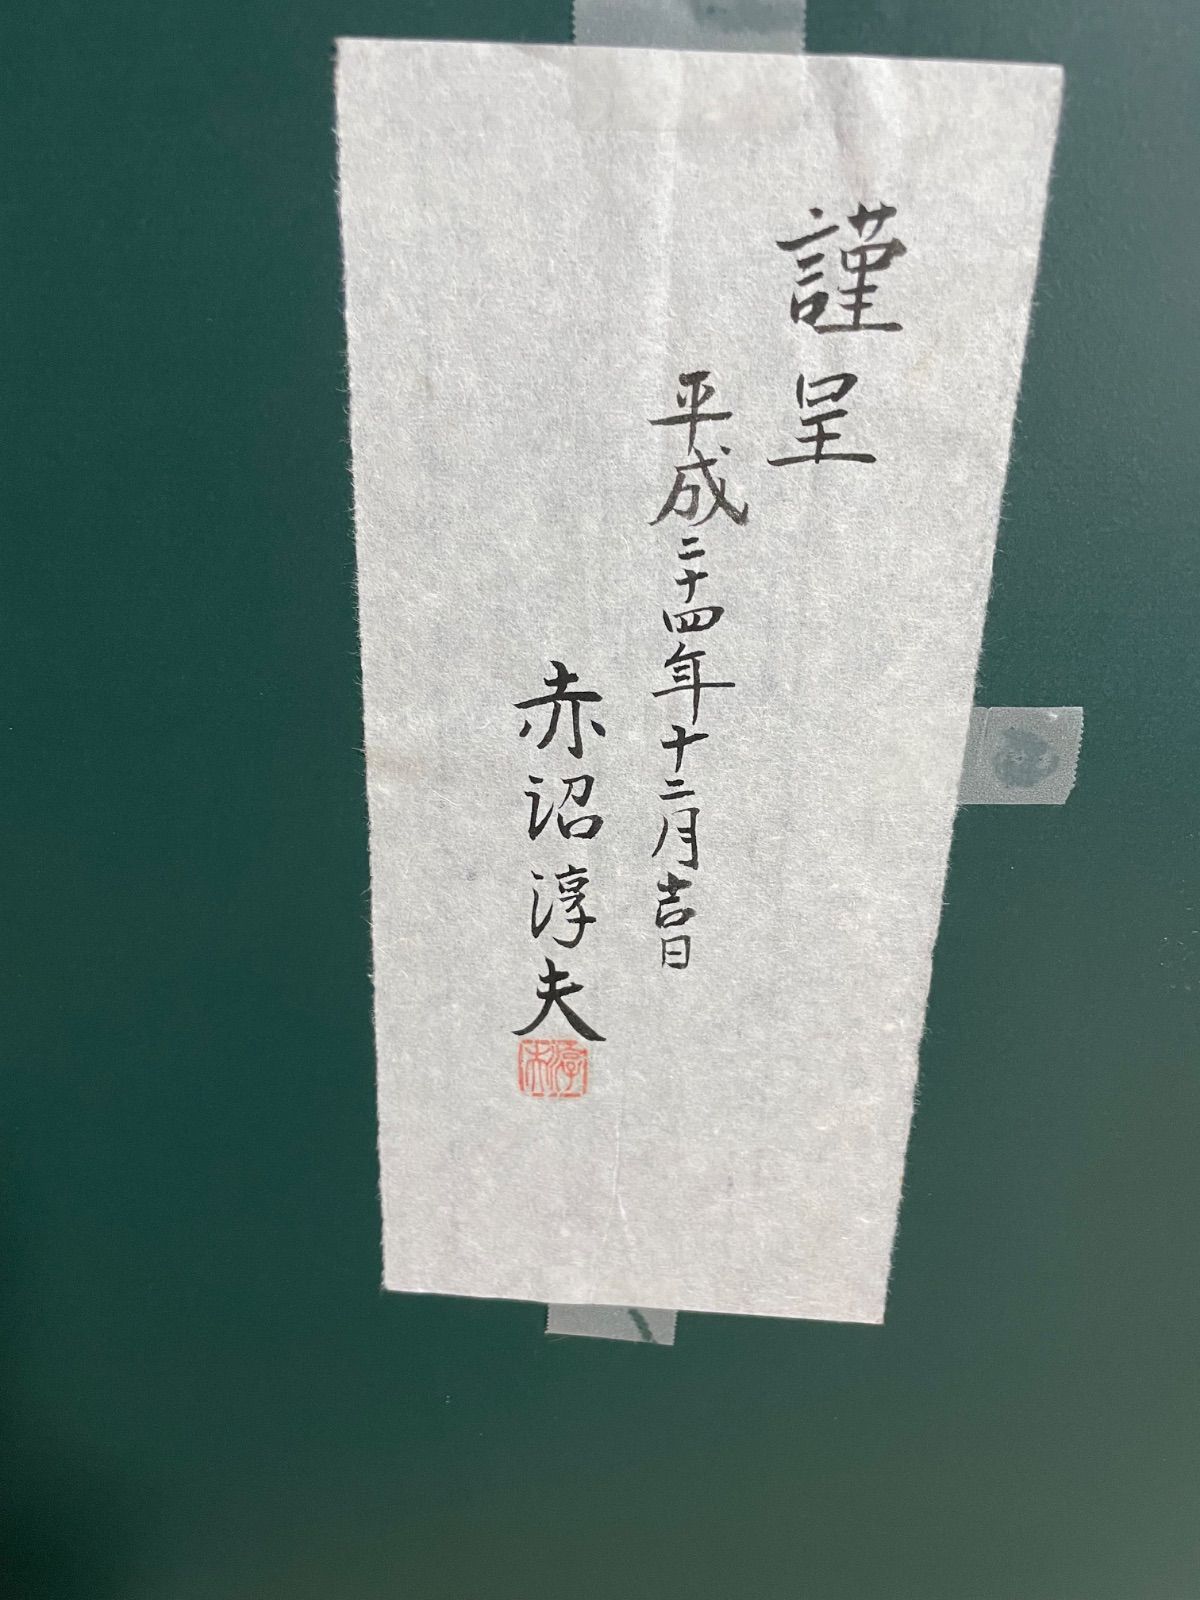 謹呈
平成二十四年十二月吉日
赤沼淳夫
淳夫